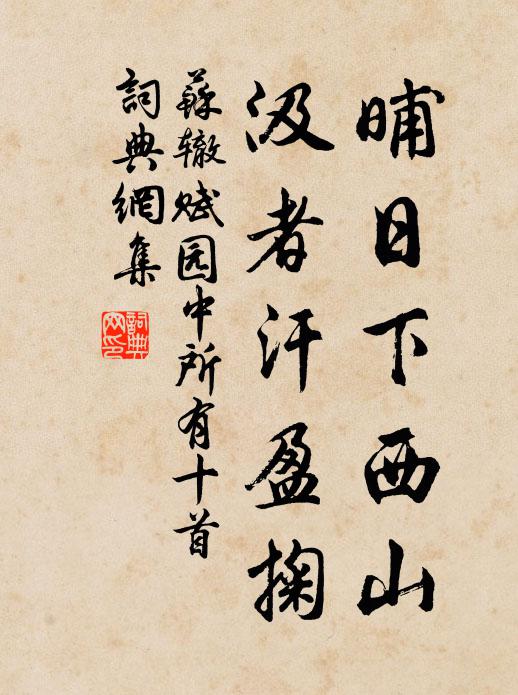 晡日下西山
汲者汗盈掬
蘇辙赋园中所有十首
詞典網集
詞典網印